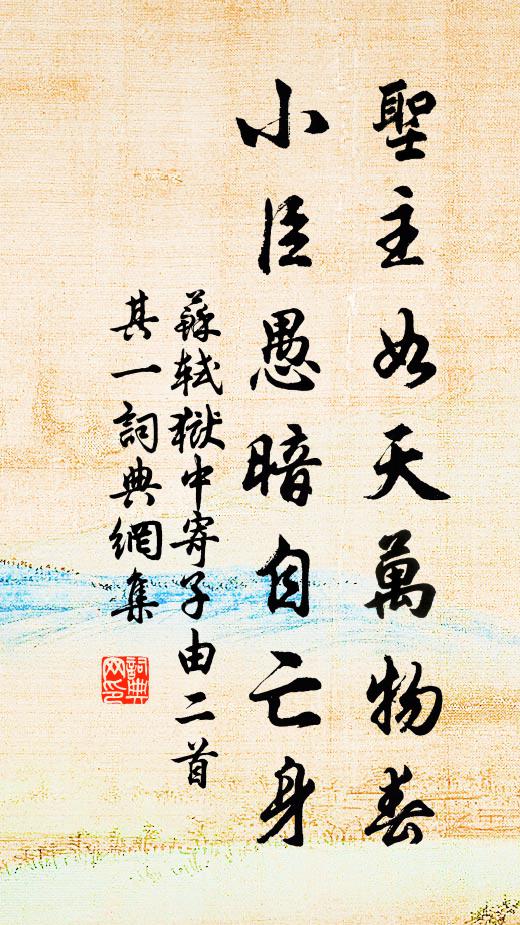 聖主如天萬物春
小臣愚暗自亡身
蘇軾獄中寄子由二首
其一詞典網集
詞典
网印